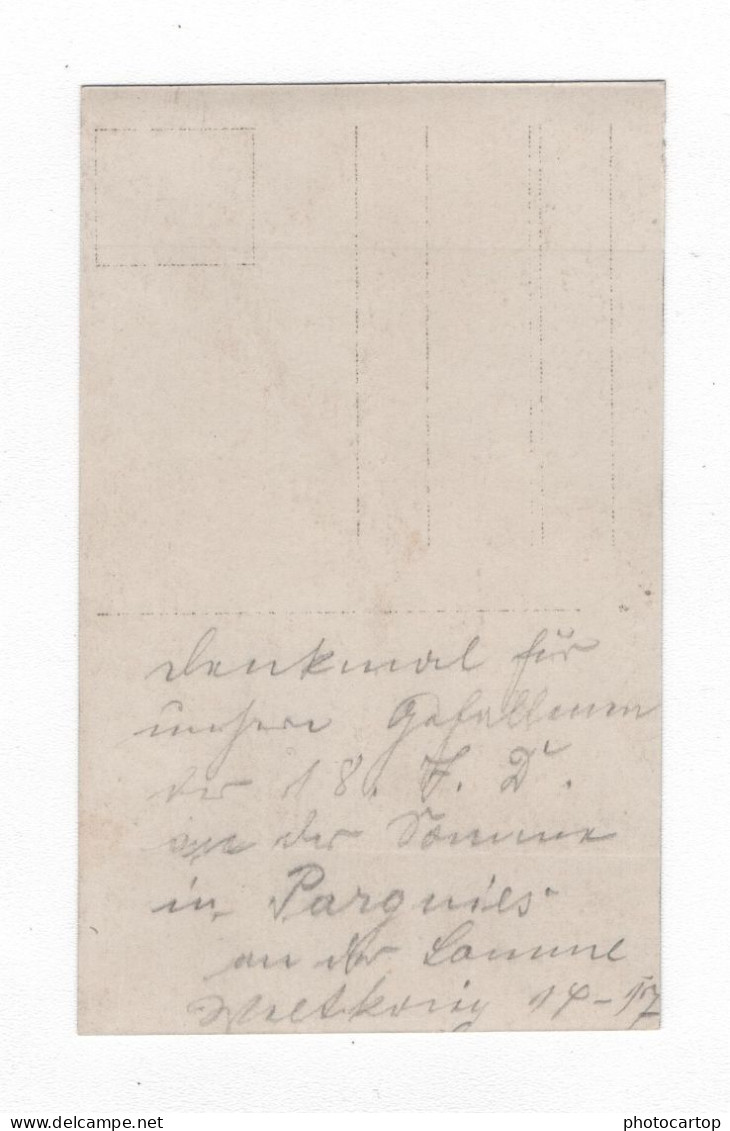 Denkmal für
unsere Gefallenen
der 18. I. D.
an der Somme
in Pargnies
an der Somme
Weltkrieg 14-17
photocartop